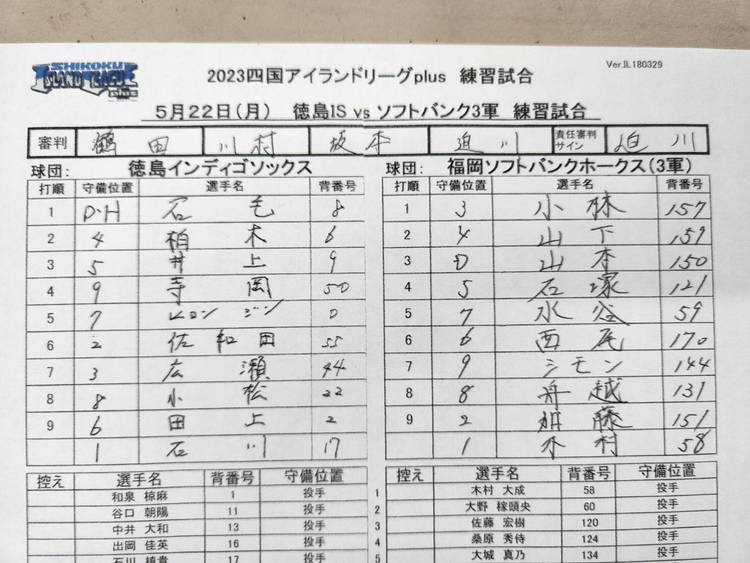 SHIKOKU
ISLAND LEAGUE
plus
Ver.JL180329
2023四国アイランドリーグplus 練習試合
5月22日(月) 徳島IS vs ソフトバンク3軍 練習試合
審判 鶴田 川村 坂本 迫川 責任審判サイン 迫川
球団: 徳島インディゴソックス
打順 守備位置 選手名 背番号
1 D・H 石毛 8
2 4 柏木 6
3 5 井上 9
4 9 寺岡 50
5 7 ジン 0
6 2 佐和田 55
7 3 広瀬 44
8 8 小松 22
9 6 田上 2
1 石川 17
控え 選手名 背番号 守備位置
和泉 椋麻 1 投手
谷口 朝陽 11 投手
中井 大和 13 投手
出岡 佳英 16 投手
石川 槙貴 17 投手
球団: 福岡ソフトバンクホークス(3軍)
打順 守備位置 選手名 背番号
1 3 小林 157
2 4 山下 159
3 D 山本 150
4 5 石塚 121
5 7 水谷 59
6 6 西尾 170
7 9 シモン 144
8 8 舟越 131
9 2 加藤 151
1 木村 58
控え 選手名 背番号 守備位置
1 木村 大成 58 投手
2 大野 稼頭央 60 投手
3 佐藤 宏樹 120 投手
4 桑原 秀侍 124 投手
5 大城 真乃 134 投手